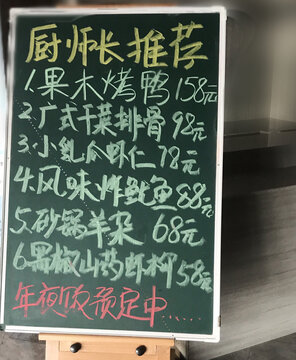 厨师长推荐
1.果木烤鸭 158元
2.广式干菜排骨 98元
3.小乳瓜虾仁 78元
4.风味炸鱿鱼 88元
5.砂锅羊杂 68元
6.黑椒山药断柳 58元
年夜饭预定中......